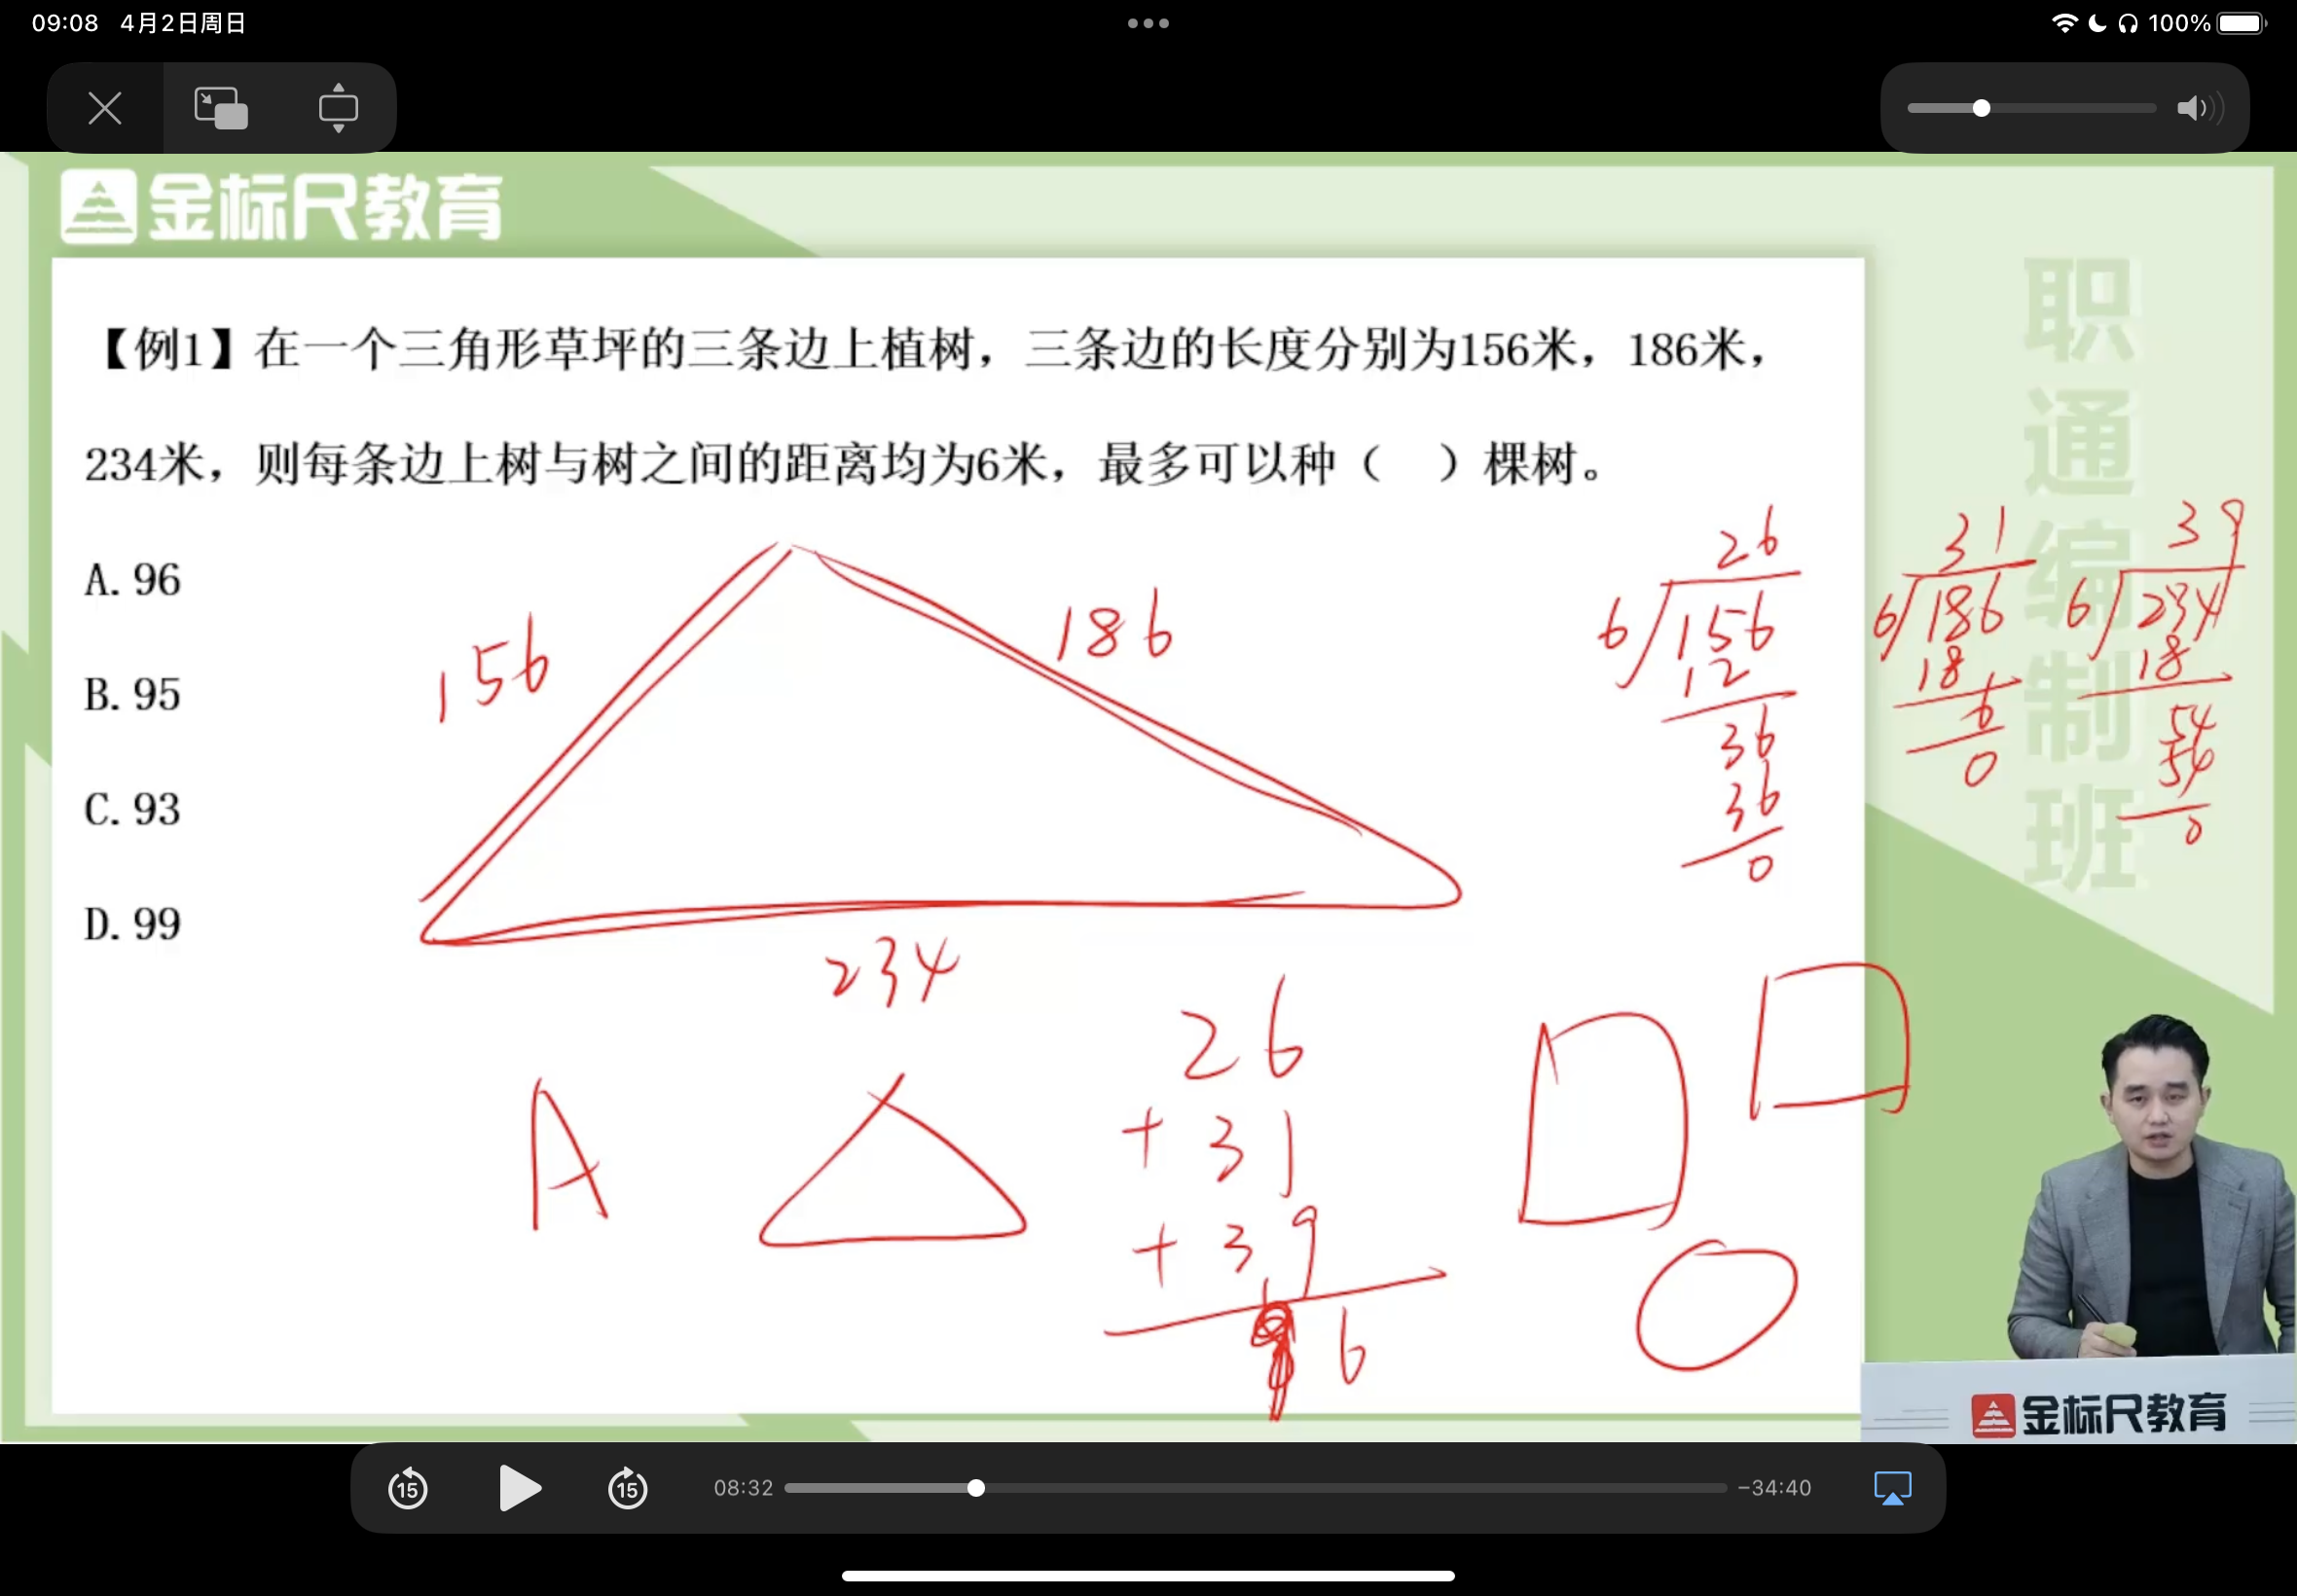 09:08 4月2日周日
100%
金标尺教育
职通编制班
【例1】在一个三角形草坪的三条边上植树，三条边的长度分别为156米，186米，
234米，则每条边上树与树之间的距离均为6米，最多可以种（ ）棵树。
A. 96
B. 95
C. 93
D. 99
156
186
234
26
6 156
12
36
36
0
31
6 186
18
6
0
39
6 234
18
54
54
0
A
26
+ 31
+ 39
96
金标尺教育
15
15
08:32
-34:40